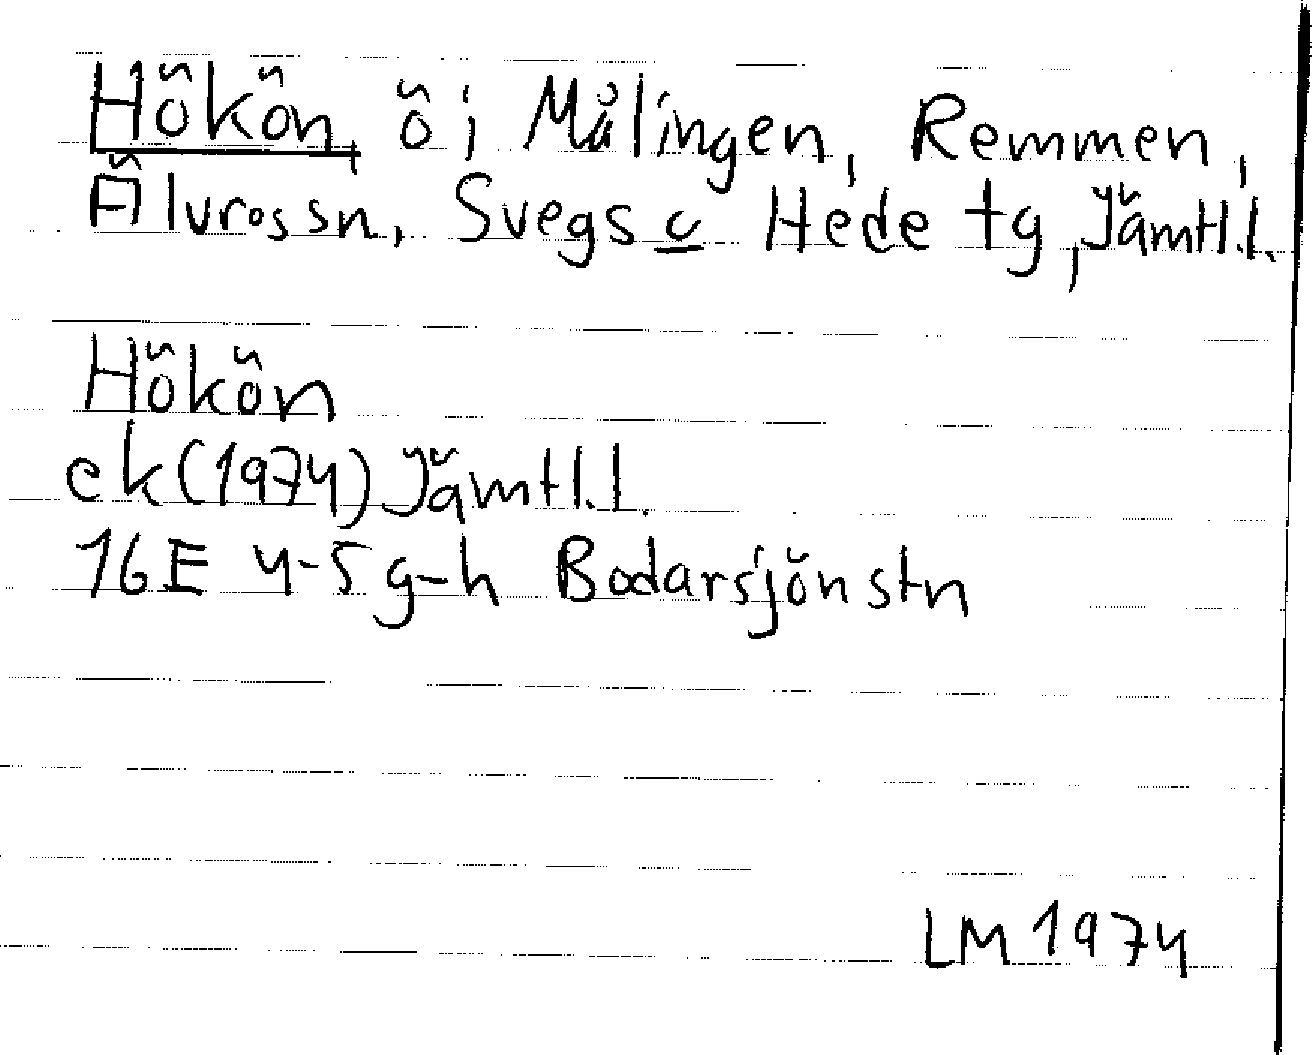 Hökön, ö i Målingen, Remmen,
Älvros sn, Svegs o Hede tg, Jämtl.l.
Hökön
ek (1974) Jämtl.l.
16E 4-5 g-h Bodarsjön stn
LM 1974